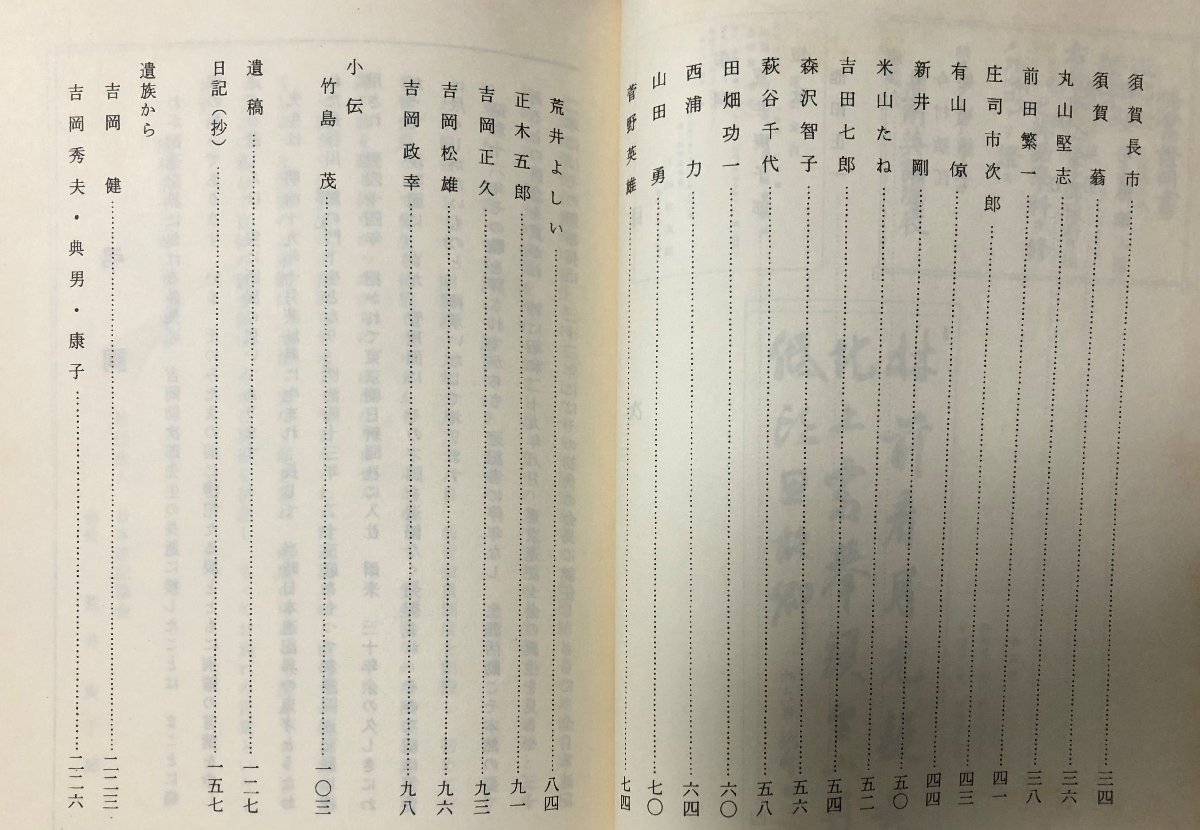 須賀長市………三四
須賀蓊………三六
丸山堅志………三六
前田繁一………三八
庄司市次郎………四一
有山倞………四三
新井剛………四四
米山たね………五〇
吉田七郎………五二
森沢智子………五四
萩谷千代………五六
田畑功一………五八
西浦力………六〇
山田勇………六四
菅野英雄………七〇
七四
荒井よしい………八四
正木五郎………九一
吉岡正久………九三
吉岡松雄………九六
吉岡政幸………九八
小伝
竹島茂………一〇三
遺稿………一二七
日記(抄)………一五七
遺族から
吉岡健………二二三
吉岡秀夫・典男・康子………二二六